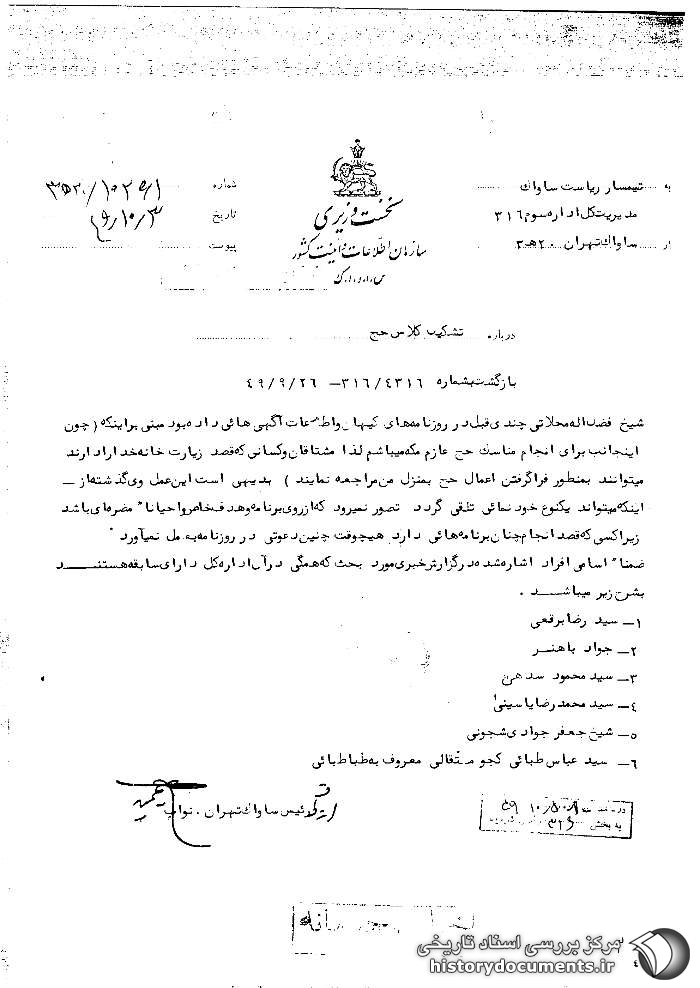 به تیمسار ریاست ساواک
مدیریت کل اداره سوم ۳۱۶
از ساواک تهران ۲۰هـ۳
نخست وزیری
سازمان اطلاعات و امنیت کشور
س.ا.و.ا.ک
شماره
تاریخ ۴۹/۱۰/۳
پیوست
درباره تشکیل کلاس حج
بازگشت بشماره ۳۱۶/٤۳۱۶ – ٤۹/۹/۲۶
شیخ فضل اله محلاتی چندی قبل در روزنامه های کیهان واطلاعات آگهی هائی داده بود مبنی براینکه ( چون
اینجانب برای انجام مناسک حج عازم مکه میباشم لذا مشتاقان وکسانی که قصد زیارت خانه خدا را دارند
میتوانند بمنظور فراگرفتن اعمال حج بمنزل من مراجعه نمایند ) بدیهی است این عمل وی گذشته از ــ
اینکه میتواند یکنوع خود نمائی تلقی گردد تصور نمیرود که از روی برنامه وهدف خاص واحیانا" مضره ای باشد
زیرا کسی که قصد انجام چنان برنامه هائی دارد هیچوقت چنین دعوتی در روزنامه به عمل نمیآورد "
ضمنا" اسامی افراد اشاره شده در گزارش خبری مورد بحث که همگی در آن اداره کل دارای سابقه هستنــــد
بشرح زیر میباشـــد .
۱ــ سید رضا برقعی
۲ــ جواد باهنــر
۳ــ سید محمود سدهی
٤ــ سید محمد رضا یاسینی
۵ــ شیخ جعفر جوادی شجونی
۶ــ سید عباس طبائی کجو مثقالی معروف به طباطبائی
رئیس ساواک تهران . نواب
به بخش ۳۲۶
مرکز بررسی اسناد تاریخی
historydocuments.ir